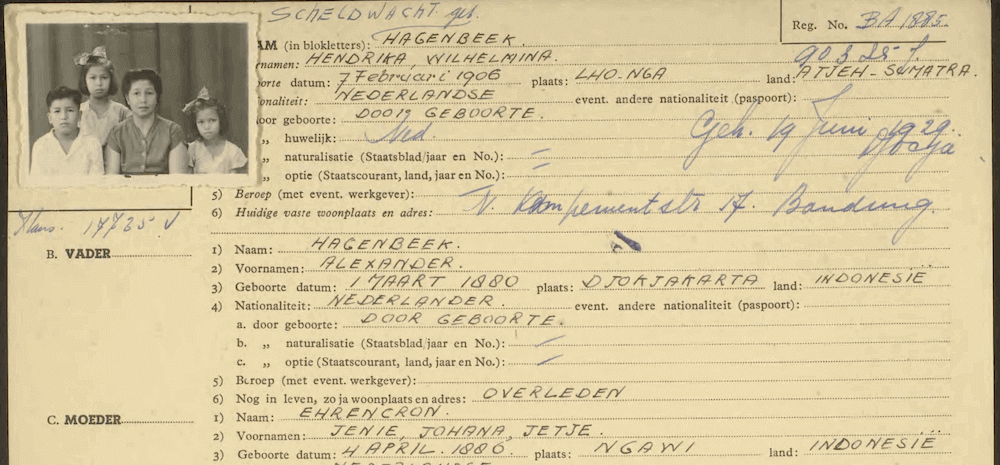 SCHELDWACHT geb.
AM (in blokletters): HAGENBEEK. Reg. No. BA 1885.
rnamen: HENDRIKA, WILHELMINA.
orte datum: 7 Februari 1906 plaats: LHO-NGA land: ATJEH-SUMATRA.
ionaliteit: NEDERLANDSE event. andere nationaliteit (paspoort):
oor geboorte: DOOR GEBOORTE.
„ huwelijk: Ned. Geh. 19 Juni 1929.
„ naturalisatie (Staatsblad/jaar en No.): Djocja
„ optie (Staatscourant, land, jaar en No.):
5) Beroep (met event. werkgever):
6) Huidige vaste woonplaats en adres: N. Kampementstr 17. Bandung
17725 V
B. VADER
1) Naam: HAGENBEEK.
2) Voornamen: ALEXANDER.
3) Geboorte datum: 1 MAART 1880 plaats: DJOKJAKARTA land: INDONESIË
4) Nationaliteit: NEDERLANDER. event. andere nationaliteit (paspoort):
a. door geboorte: DOOR GEBOORTE.
b. „ naturalisatie (Staatsblad/jaar en No.):
c. „ optie (Staatscourant, land, jaar en No.):
5) Beroep (met event. werkgever):
6) Nog in leven, zo ja woonplaats en adres: OVERLEDEN
C. MOEDER
1) Naam: EHRENCRON.
2) Voornamen: JENIE, JOHANA, JETJE.
3) Geboorte datum: 4 APRIL. 1886 plaats: NGAWI land: INDONESIË
NEDERLANDSE